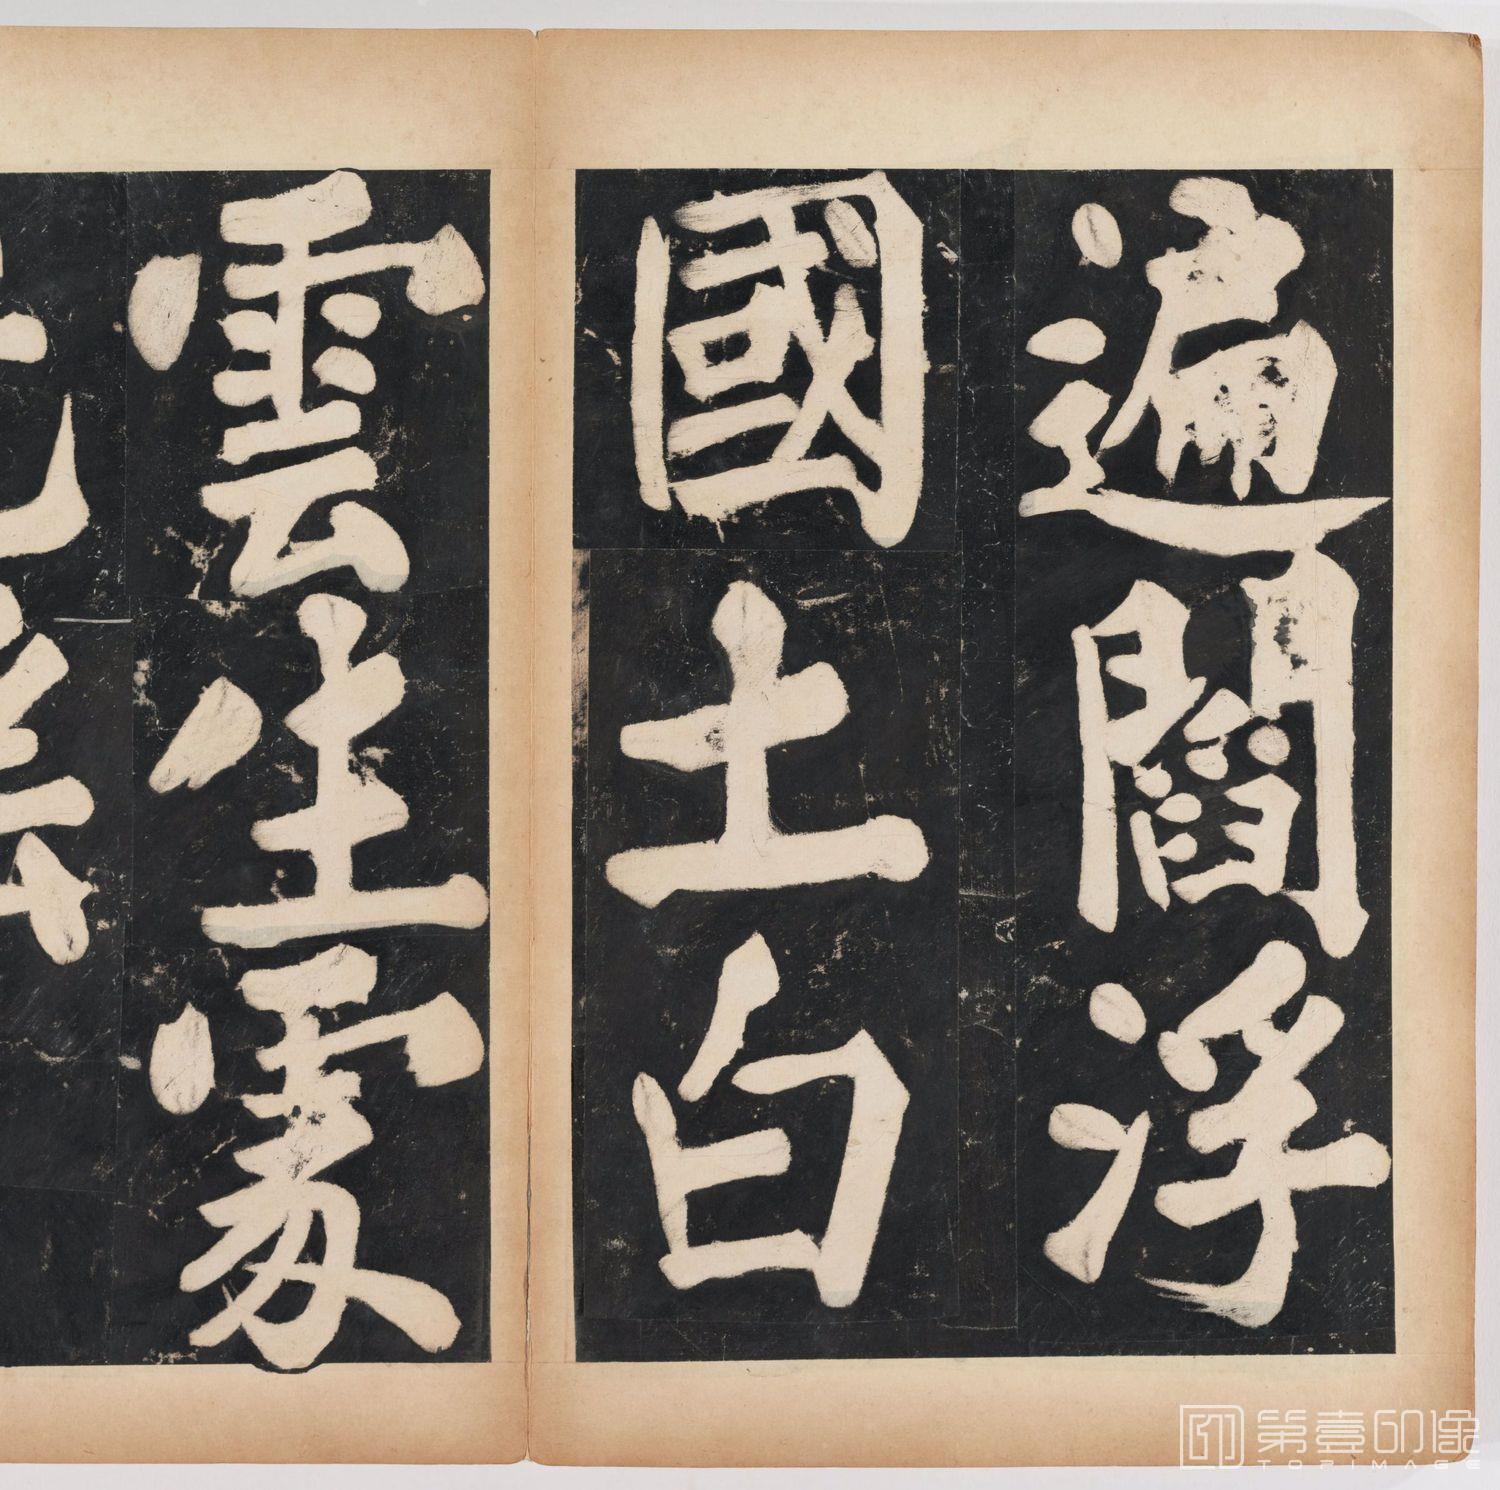 遍閻浮
國土白
雲生處
第壹印像
TOPIMAGE